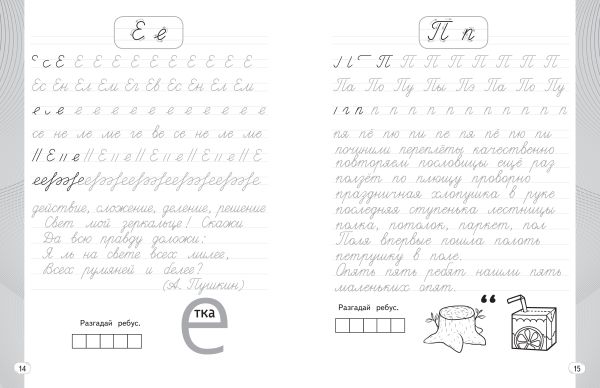 Е е
Е Е Е Е Е Е Е Е Е Е Е
Ес Ен Ел Ем Ег Ев Ес Ен Ел Ем
е е е е е е е е е е е
се не ле ме ге ве се не ле ме
действие, сложение, деление, решение
Свет мой зеркальце! Скажи
Да всю правду доложи:
Я ль на свете всех милее,
Всех румяней и белее?
(А. Пушкин)
Разгадай ребус.
е
тка
14
П п
П П П П П П П П
Па По Пу Пы Пэ Па По Пу
п п п п п п п п п п п п
пя пё пю пи пе пя пё пю пи
починили переплёты качественно
повторяем пословицы ещё раз
ползёт по плющу проворно
праздничная хлопушка в руке
последняя ступенька лестницы
полка, потолок, паркет, пол
Поля впервые пошла полоть
петрушку в поле.
Опять пять ребят нашли пять
маленьких опят.
Разгадай ребус.
“
15